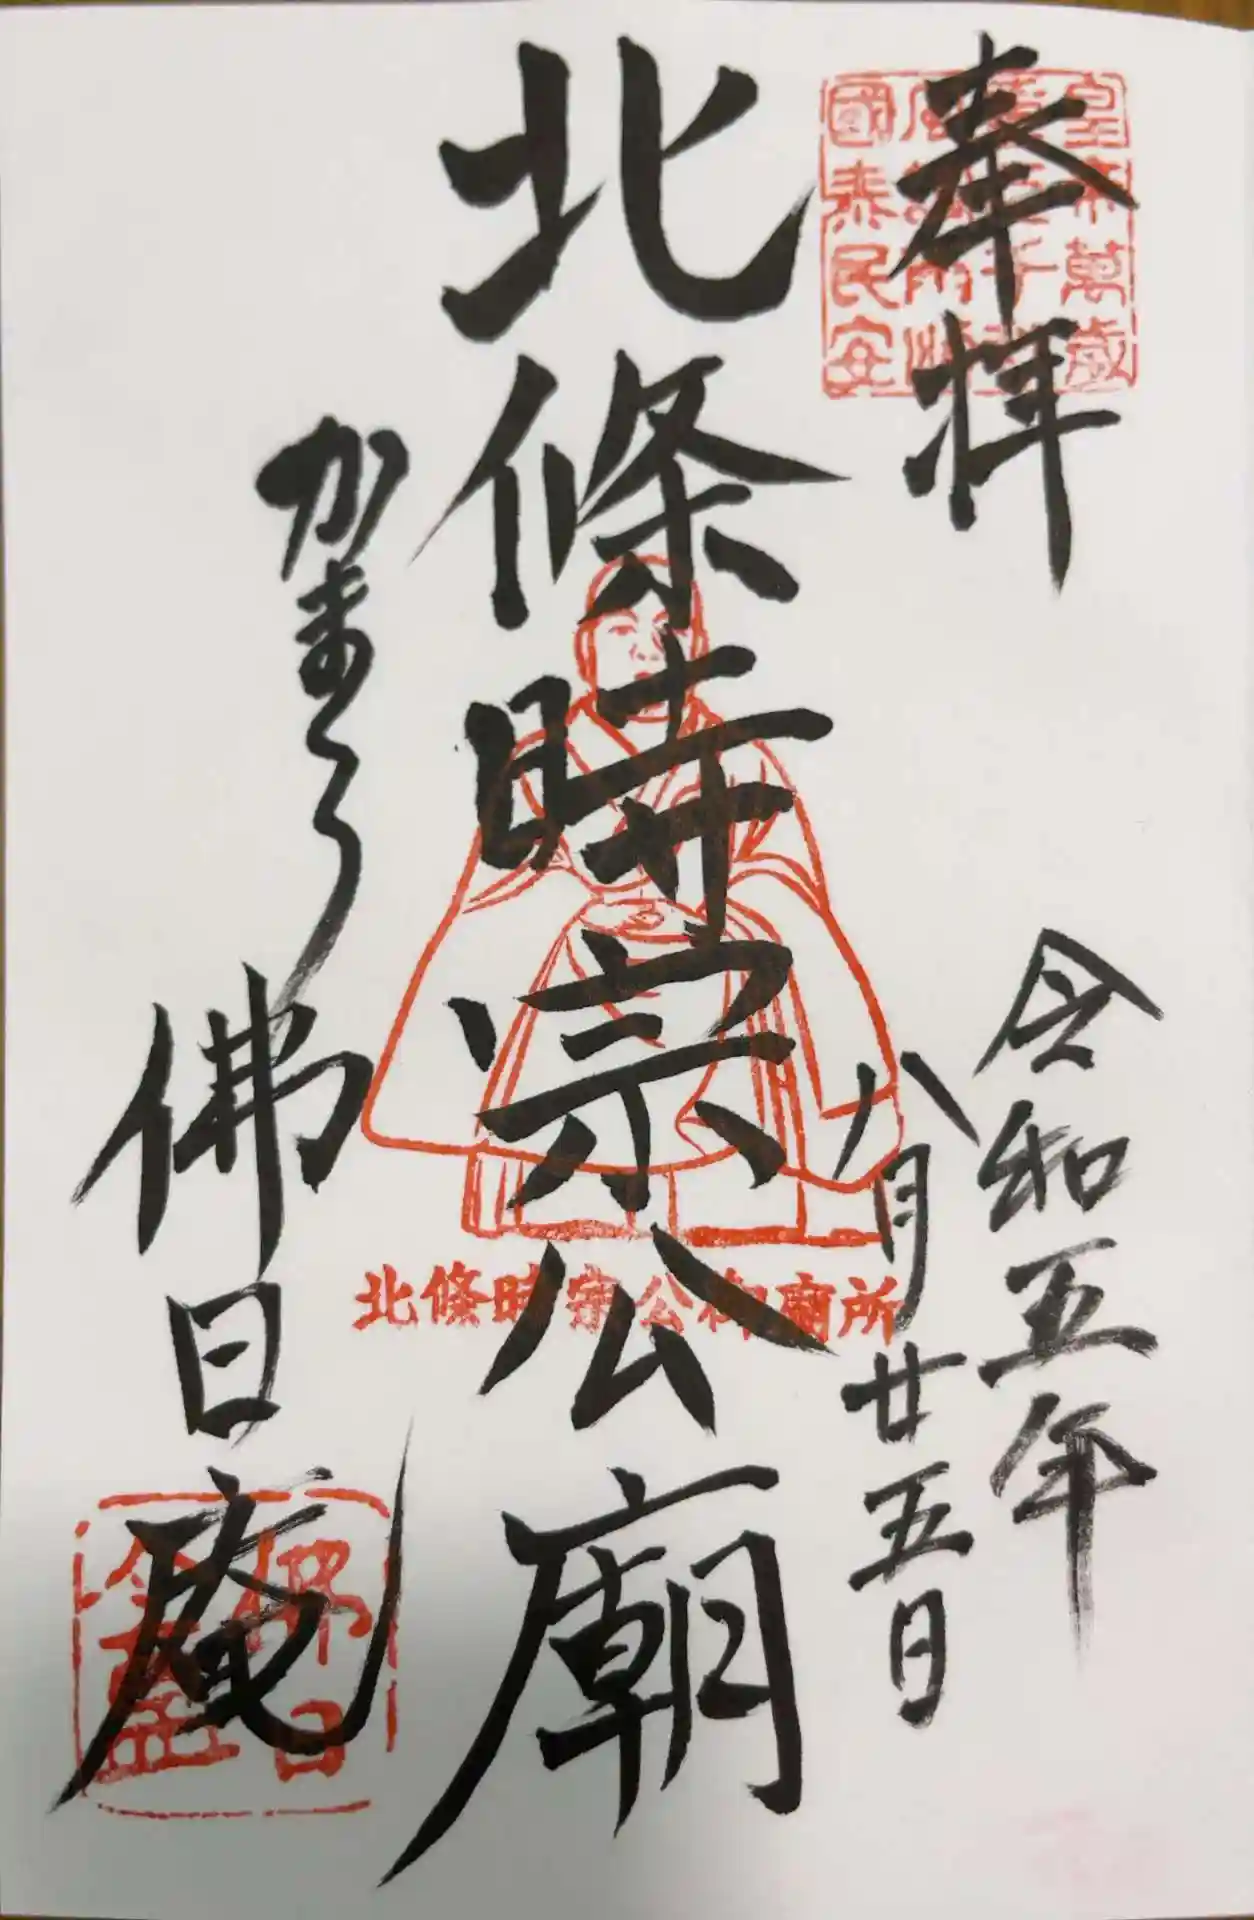 奉拝
皇帝萬歳
國泰民安
令和五年
八月廿五日
北條時宗公廟
北條時宗公御廟所
かまくら
佛日庵
佛日